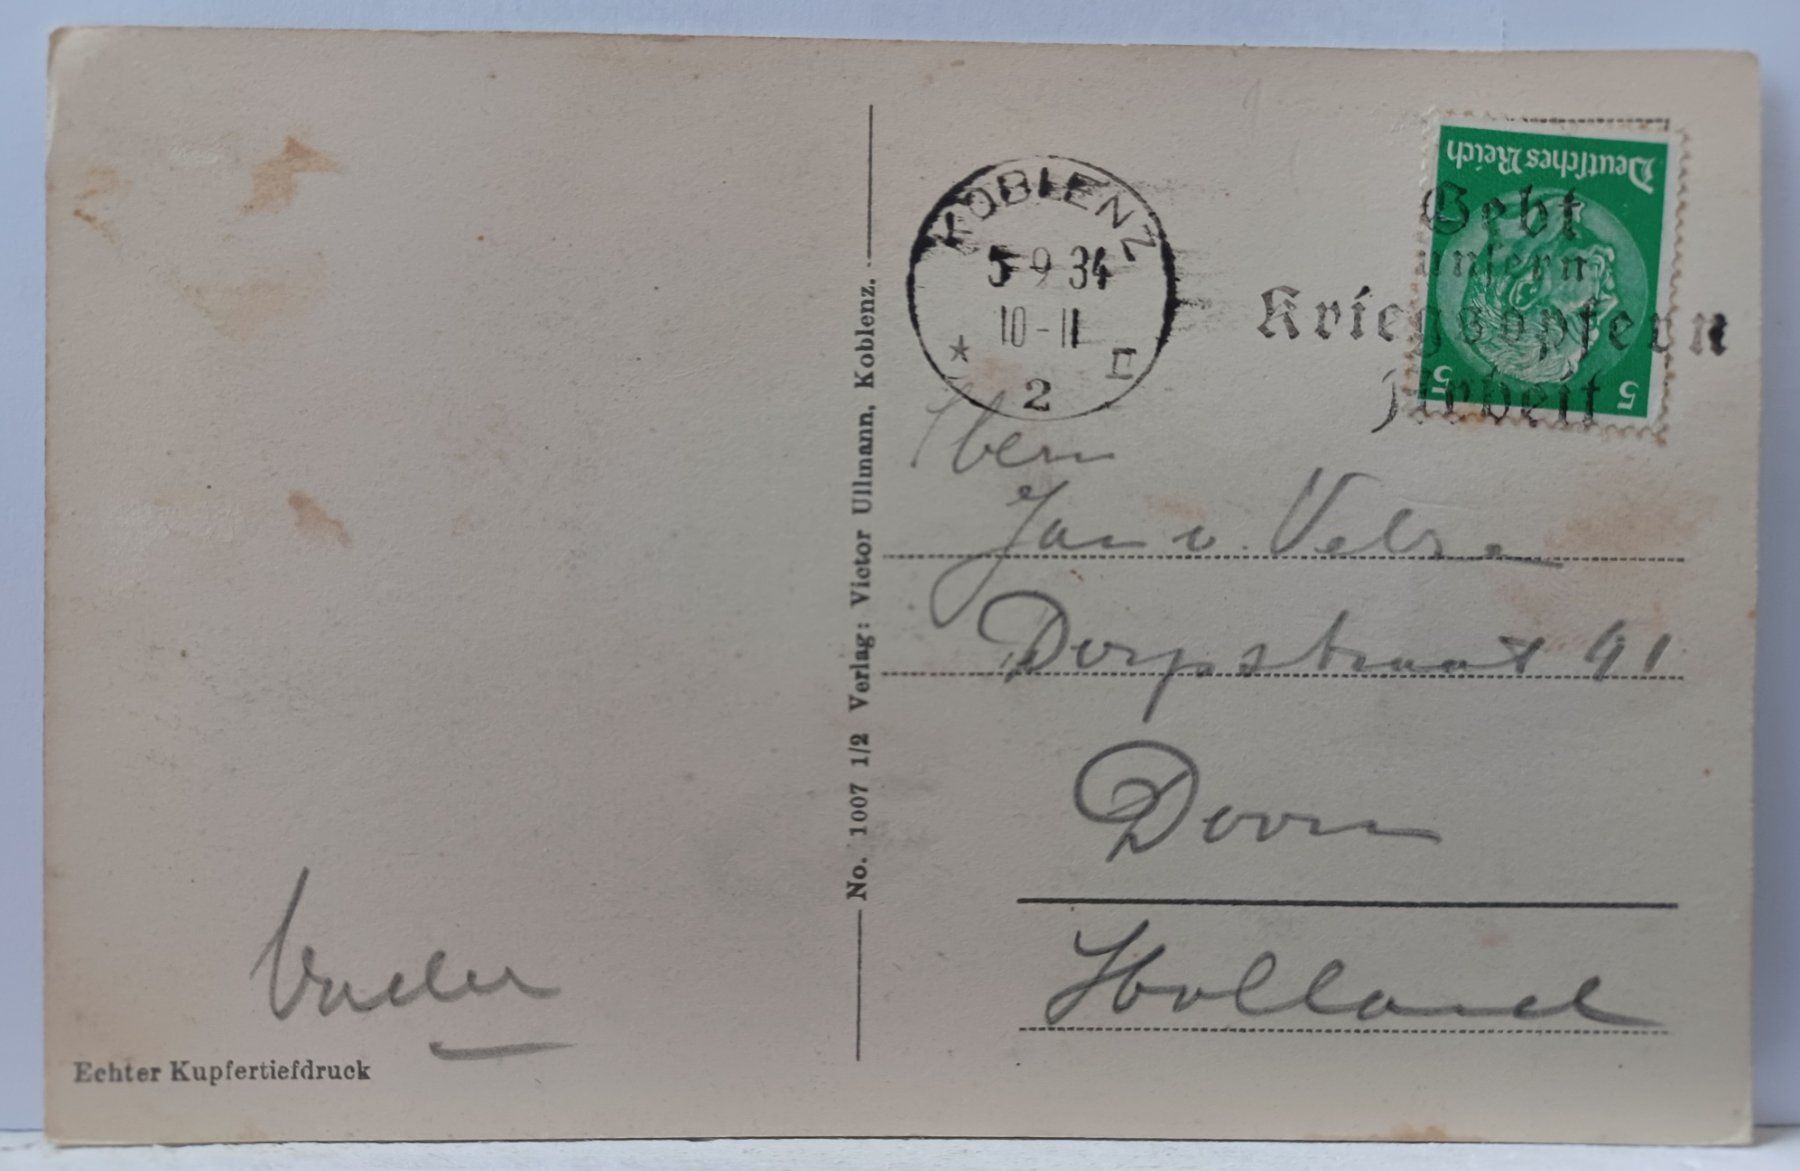 KOBLENZ
5-9 34
10-11
* II
2
Gebt
unsern
Kriegsopfern
Arbeit
Deutsches Reich
5 5
No. 1007 1/2 Verlag: Victor Ullmann, Koblenz.
Jan v. Velze
Dorpstraat 41
Doorn
Holland
Vader
Echter Kupfertiefdruck